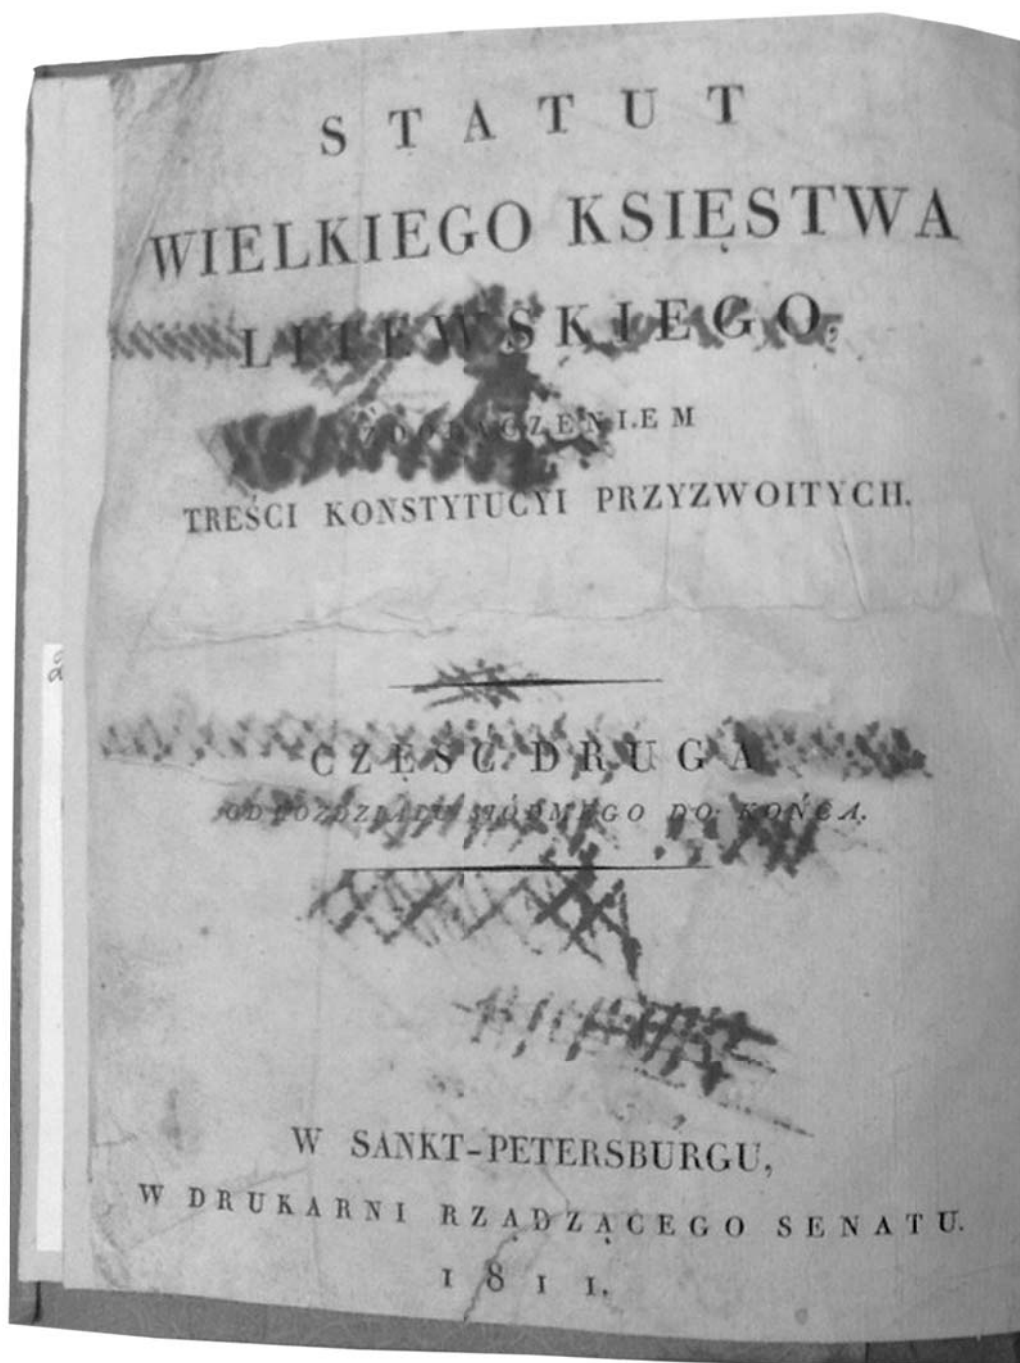 STATUT
WIELKIEGO KSIĘSTWA
LITEWSKIEGO,
TREŚCI KONSTYTUCYI PRZYZWOITYCH.
CZĘŚĆ DRUGA
OD ROZDZIAŁU SIÓDMEGO DO KOŃCA.
W SANKT-PETERSBURGU,
W DRUKARNI RZĄDZĄCEGO SENATU.
1811.